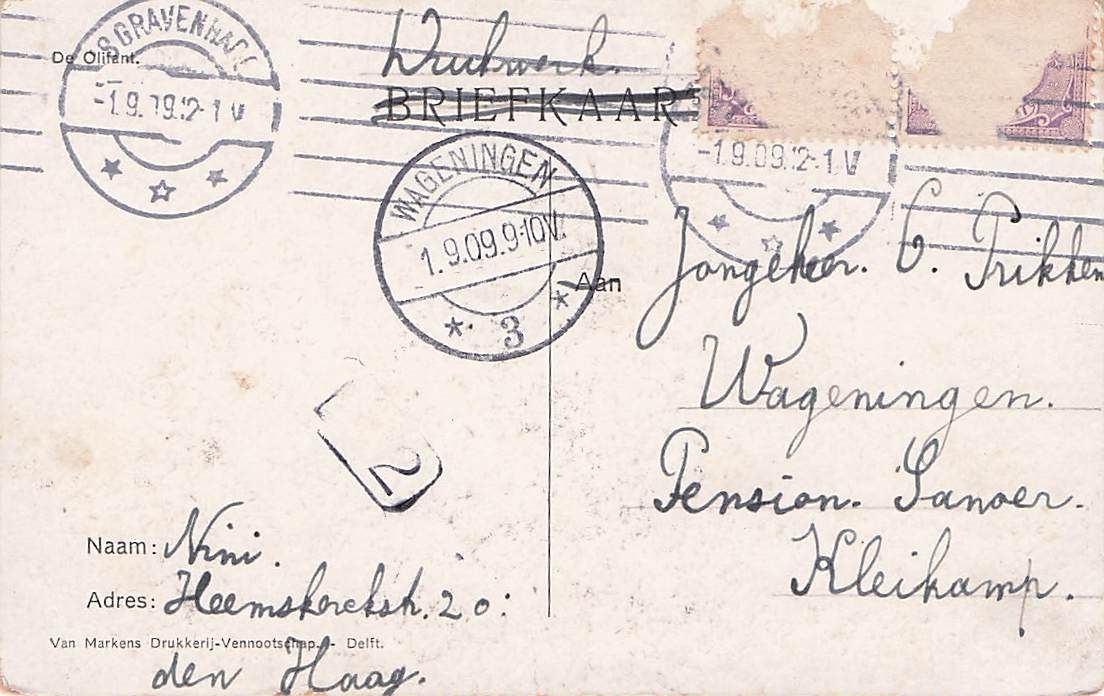 'S GRAVENHAGE
-1.9.09.12-1 V
De Olifant.
Drukwerk.
BRIEFKAART
-1.9.09.12-1.V
WAGENINGEN
1.9.09.9-10V.
3
Aan
Jongeheer. C. Prikken
Wageningen.
Pension. Sanoer.
Kleikamp.
2
Naam: Nini.
Adres: Heemskerckstr. 20:
Van Markens Drukkerij-Vennootschap. - Delft.
den Haag.